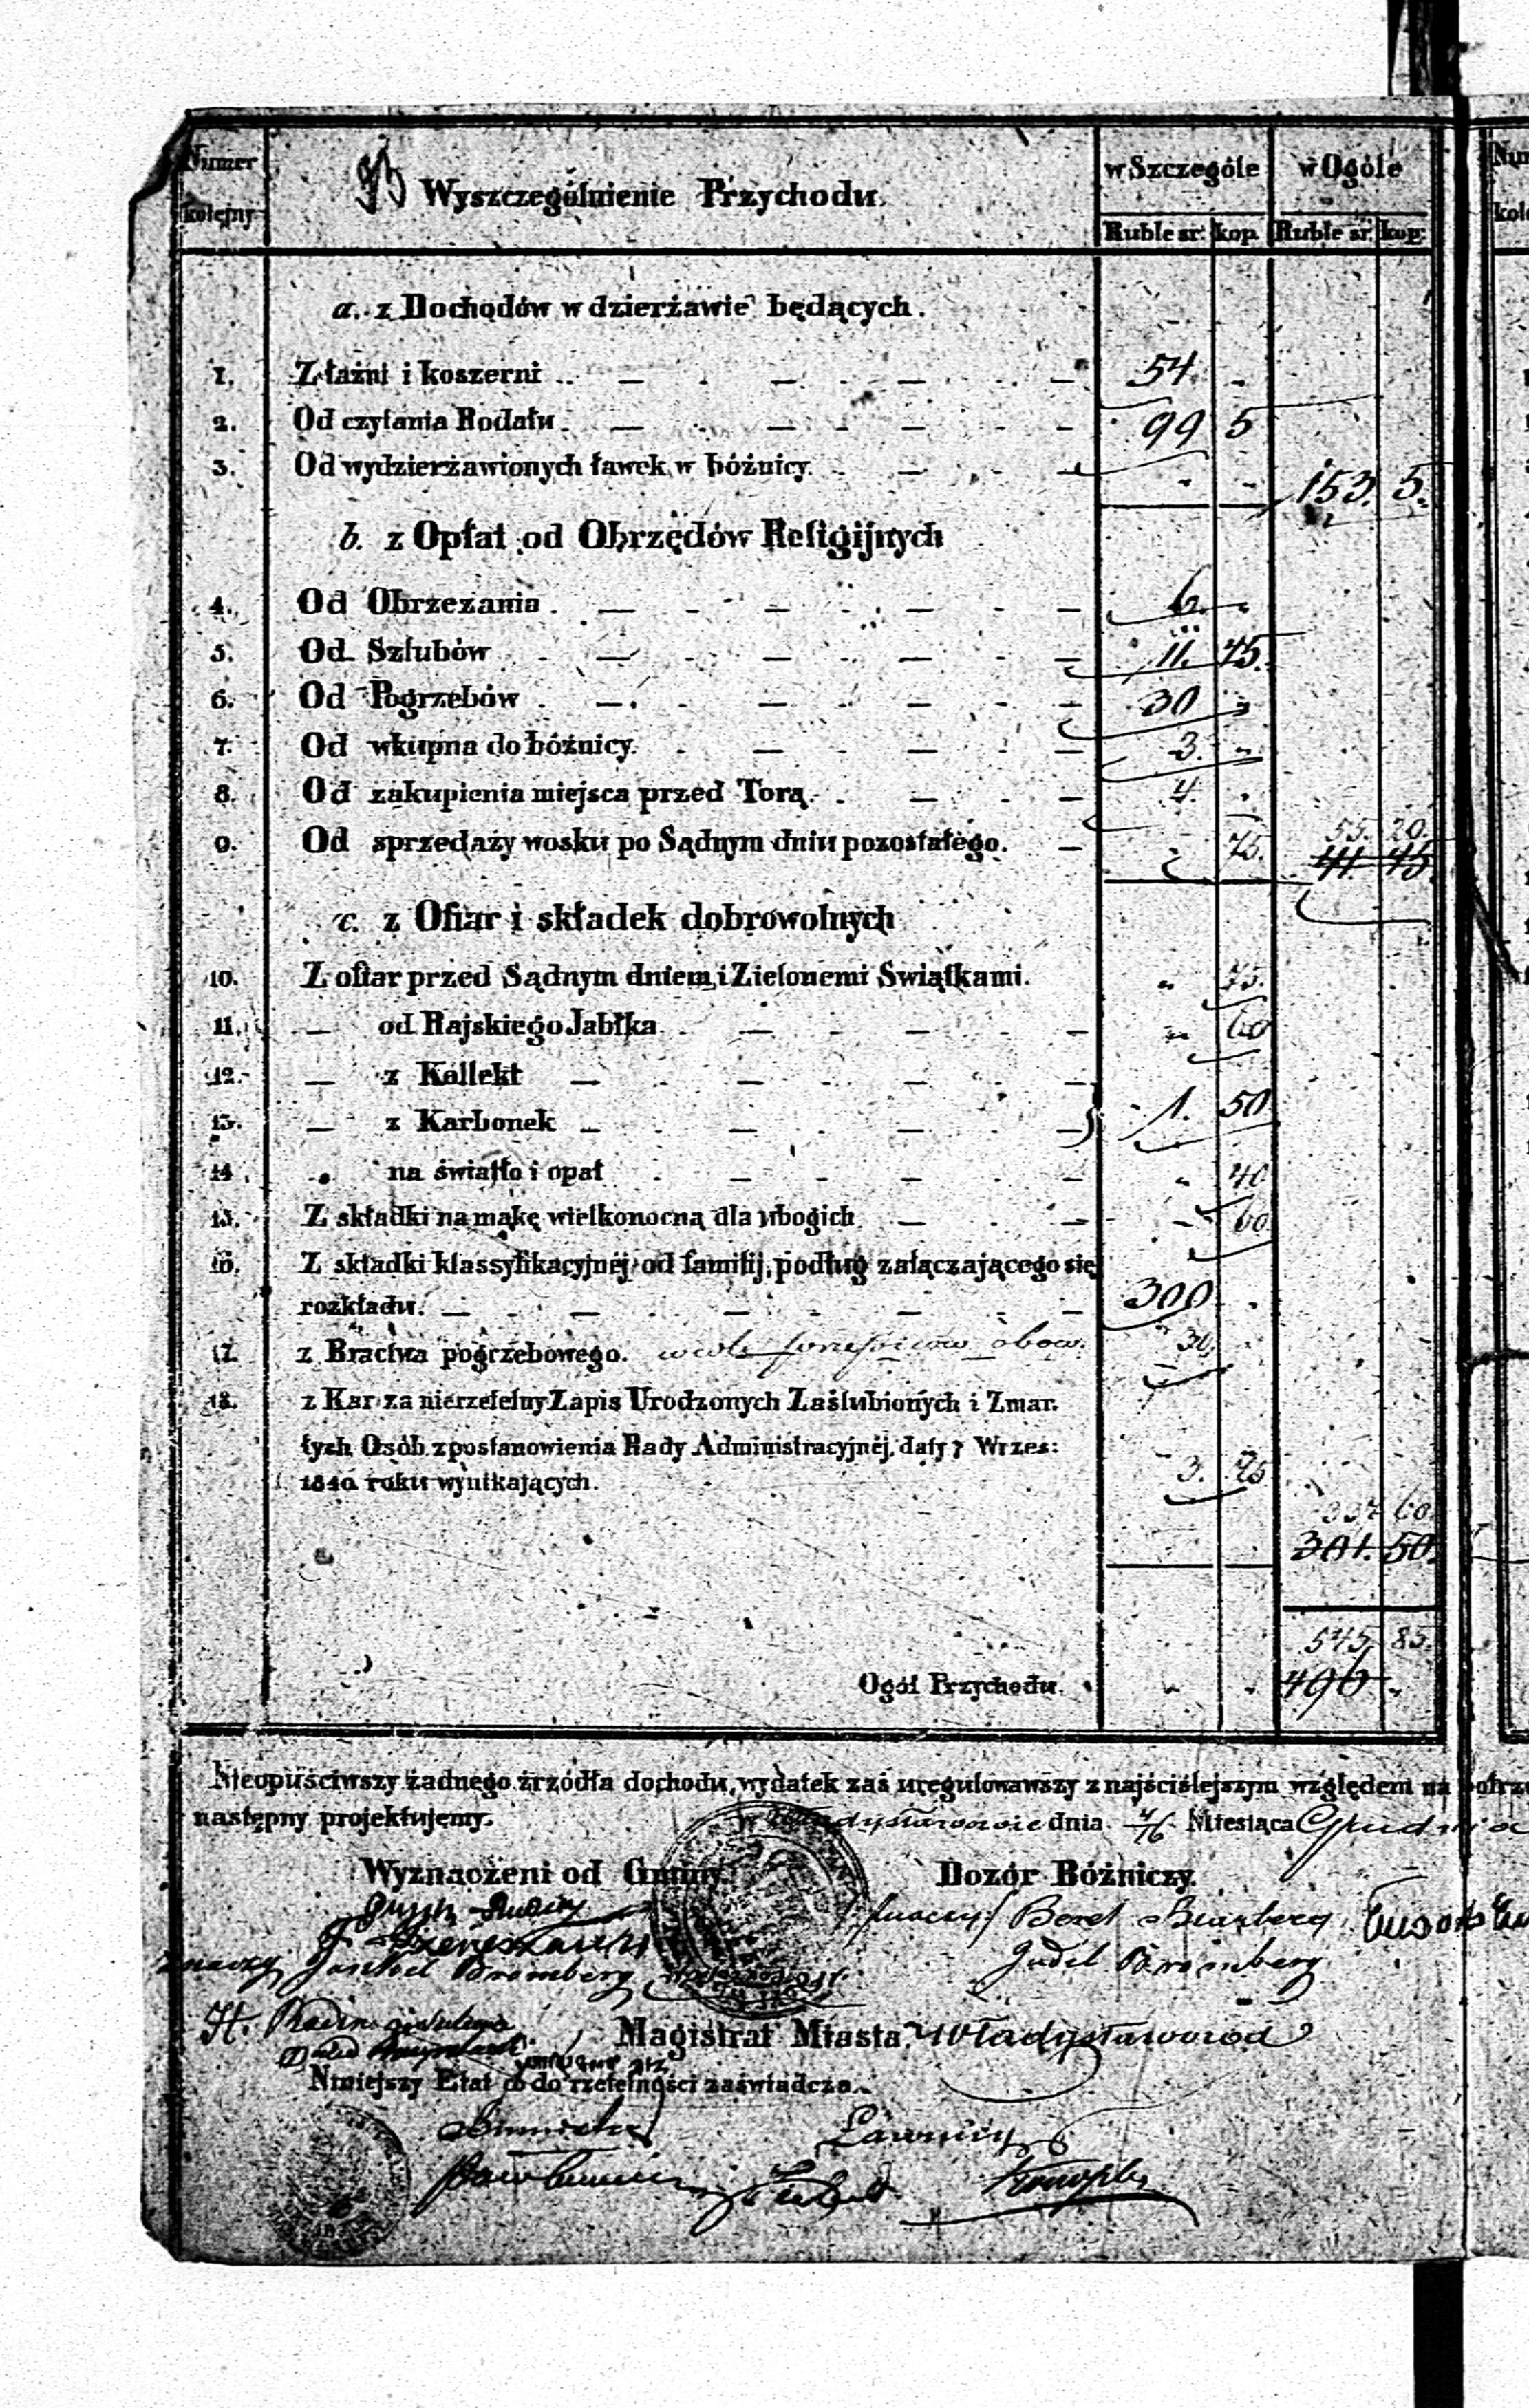 Numer kolejny Wyszczególnienie Przychodu. w Szczególe w Ogóle
Ruble sr: kop. Ruble sr. kop:
a. z Dochodów w dzierżawie będących.
1. Z łaźni i koszerni 54. -
2. Od czytania Rodału 99 5
3. Od wydzierżawionych ławek w bóźnicy. - - 153. 5.
b. z Opłat od Obrzędów Religijnych
4. Od Obrzezania. 6. -
5. Od Szlubów 11. 75.
6. Od Pogrzebów 30 -
7. Od wkupna do bóźnicy. 3. -
8. Od zakupienia miejsca przed Torą. 4. -
55. 20.
9. Od sprzedaży wosku po Sądnym dniu pozostałego. - 75. 41 45
c. z Ofiar i składek dobrowolnych
10. Z ofiar przed Sądnym dniem i Zielonemi Swiątkami. - 75.
11. — od Rajskiego Jabłka - 60
12. — z Kollekt
13. — z Karbonek 1. 50
14. na światło i opał - 40
15. Z składki na mąkę wielkonocną dla ubogich - 60
16. Z składki klassyfikacyjnéj od familij, podług załączającego się
rozkładu. 300 -
17. z Bractwa pogrzebowego. 30. -
18. z Kar za nierzetelny Zapis Urodzonych Zaślubionych i Zmar.
łych Osób z postanowienia Rady Administracyjnéj, daty 7 Wrzes:
1840 roku wynikających. 3. 75
337 60.
301. 50.
545. 85.
Ogół Przychodu. - - 496 -
Nieopuściwszy żadnego źrzódła dochodu, wydatek zaś uregulowawszy z najściślejszym względem na potrze
następny projektujemy. w Władysławowie dnia 4/16 Miesiąca Grudnia
Wyznaczeni od Gminy. Dozór Bóźniczy.
/znaczy/ Berek
znaczy Jankiel Bromberg Judel Bromberg
H.
Magistrat Miasta Władysławowa
Niniejszy Etat co do rzetelności zaświadcza.
Burmistrz Ławnicy